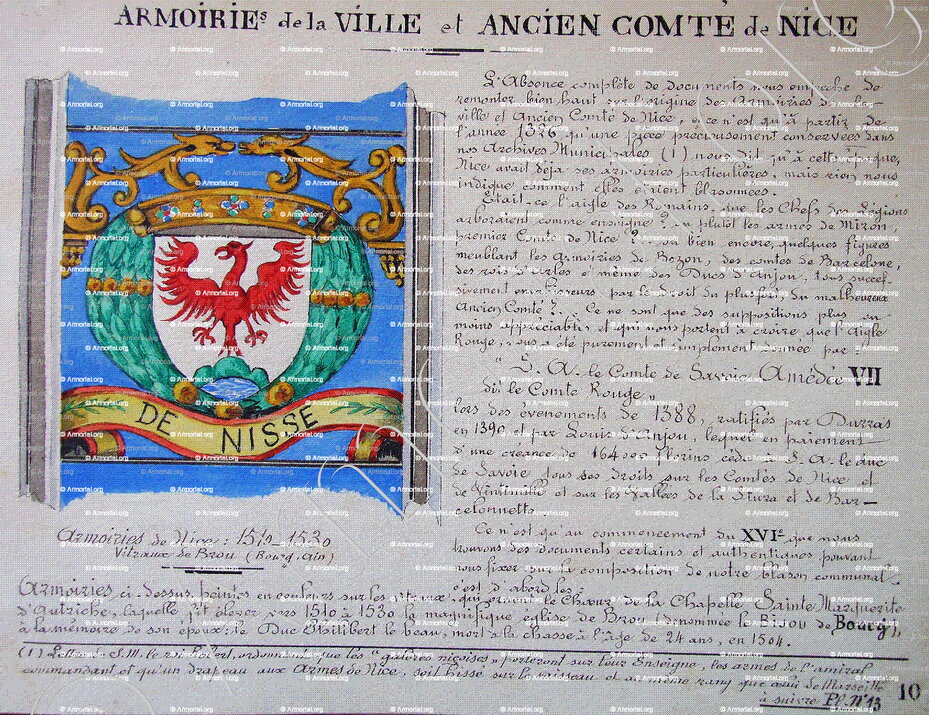 ARMOIRIEs de la VILLE et ANCIEN COMTÉ de NICE
DE NISSE
L'Absence complète de documents nous empêche de
remonter bien haut sur l'origine des armoiries de
ville et Ancien Comté de Nice, et ce n'est qu'à partir de
l'année 1326 qu'une pièce précieusement conservée dans
nos Archives Municipales (1) nous dit qu'à cette époque,
Nice avait déjà ses armoiries particulières, mais rien nous
indique comment elles étaient blasonnées.
Était-ce l'aigle des Romains, que les Chefs des Légions
arboraient comme enseigne? ou plutôt les armes de Miron,
premier Comte de Nice? ou bien encore, quelques figures
meublant les armoiries de Bozon, des comtes de Barcelone,
des rois d'Arles et même des Ducs d'Anjou, tous succes-
sivement envahisseurs par le droit du plus fort, du malheureux
Ancien Comté?. Ce ne sont que des suppositions plus ou
moins appréciables et qui nous portent à croire que l'Aigle
Rouge, nous a purement et simplement donnée par:
" S. A. le Comte de Savoie Amédée VII
dit le Comte Rouge "
lors des évènements de 1388, ratifiés par Durras
en 1390, et par Louis d'Anjou, lequel en paiement
d'une créance de 164000 florins céda à S. A. le duc
de Savoie tous ses droits sur les Comtés de Nice et
de Vintimille et sur les Vallées de la Stura et de Bar-
celonnette
Ce n'est qu'au commencement du XVIe que nous
trouvons des documents certains et authentiques pouvant
nous fixer sur la composition de notre blason communal
c'est d'abord les
Armoiries de Nice: 1510-1530
Vitraux de Brou (Bourg, Ain)
Armoiries ci-dessus, peintes en couleurs sur les vitraux qui ornent le Chœur de la Chapelle Sainte Marguerite
d'Autriche, laquelle fit élever vers 1510 à 1530 la magnifique église de Brou (dénommée le Bijou de Bourg),
à la mémoire de son époux, le Duc Philibert le beau, mort à la chasse à l'âge de 24 ans, en 1504.
(1) Lettre de S.M. le roi Robert, ordonnant que les "galères niçoises" porteront sur leur Enseigne, les armes de l'amiral
commandant et qu'un drapeau aux Armes de Nice, soit hissé sur le vaisseau et au même rang que celui de Marseille
à suivre Pl. N° 13
10